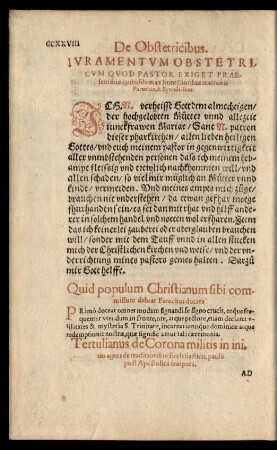 CCXXVIII
De Obstetricibus.
IVRAMENTVM OBSTETRI-
CVM QVOD PASTOR EXIGET PRAE-
sentibus quibusdam ex honestioribus matronis
Parœciæ, & Synodalibus.
ICh N. verheisse Gott dem almechtigen/
der hochgelobten Mütter vnnd allezeit
iunckfrawen Mariae/ Sant N. patron
dieser pharrkirchen/ allen lieben heiligen
Gottes/ vnd euch meinem pastor in gegenwertigkeit
aller vmmbstehenden personen das ich meinem heb-
ampt fleissig vnd trewlich nachkommen will/ vnd
allen schaden/ so viel mir müglich an Mütter vnnd
kinde/ vermeiden. Vnd meines ampts mich züge-
brauchen nit vnderstehen/ da etwan gefhar
furhanden sein/ es sei dann mit rhat vnd hülff ande-
rer in solchem handel vnd
das ich keinerlei zauberei oder aberglauben brauchen
will/ sonder mit dem Tauff vnnd in allen stucken
mich der Christlichen kirchen vnd weise/ vnd der vn-
derrichtung mines pastors gemes halten. Darzü
mir Gott helffe.
Quid populum Christianum sibi com-
missum debeat Parochus docere
PRimò doceat omnes modum signandi se signo crucis, eoque fre-
quenter vtendum in fronte, ore, atque pectore, etiam declaret v-
tilitates & mysteria S. Trinitatis, incarnationisque dominicæ atque
redemptionis nostræ, quæ significantur tali cæremonia.
Tertulianus de Corona militis in ini-
tio agens de traditionibus Ecclesiasticis, paulò
post Apostolica tempora.
AD